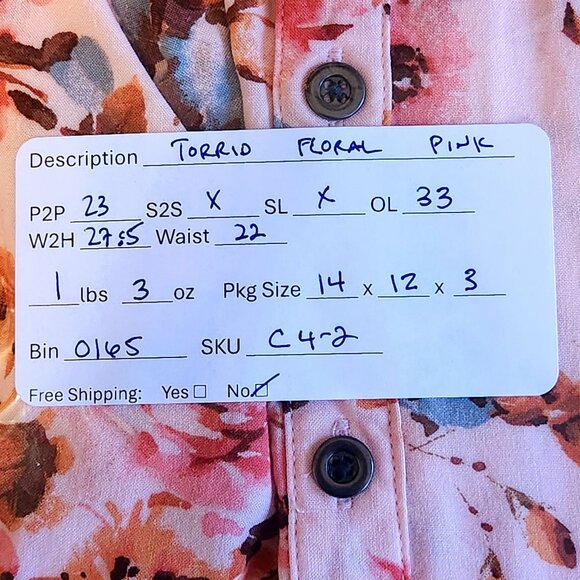 Description TORRID FLORAL PINK
P2P 23 S2S X SL X OL 33
W2H 27.5 Waist 22
1 lbs 3 oz Pkg Size 14 x 12 x 3
Bin 0165 SKU C4-2
Free Shipping: Yes ☐ No ☑